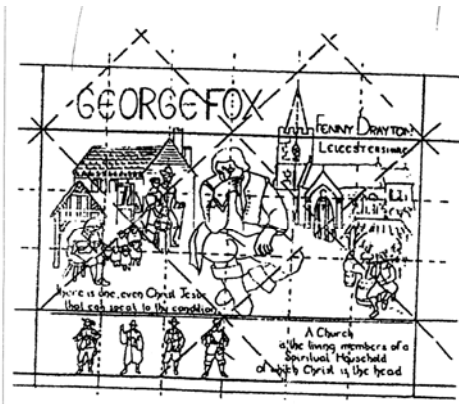 GEORGE FOX
FENNY DRAYTON
LEICESTERSHIRE
there is one, even Christ Jesus
that can speak to thy condition
A Church
is the living members of a
Spiritual Household
of which Christ is the head